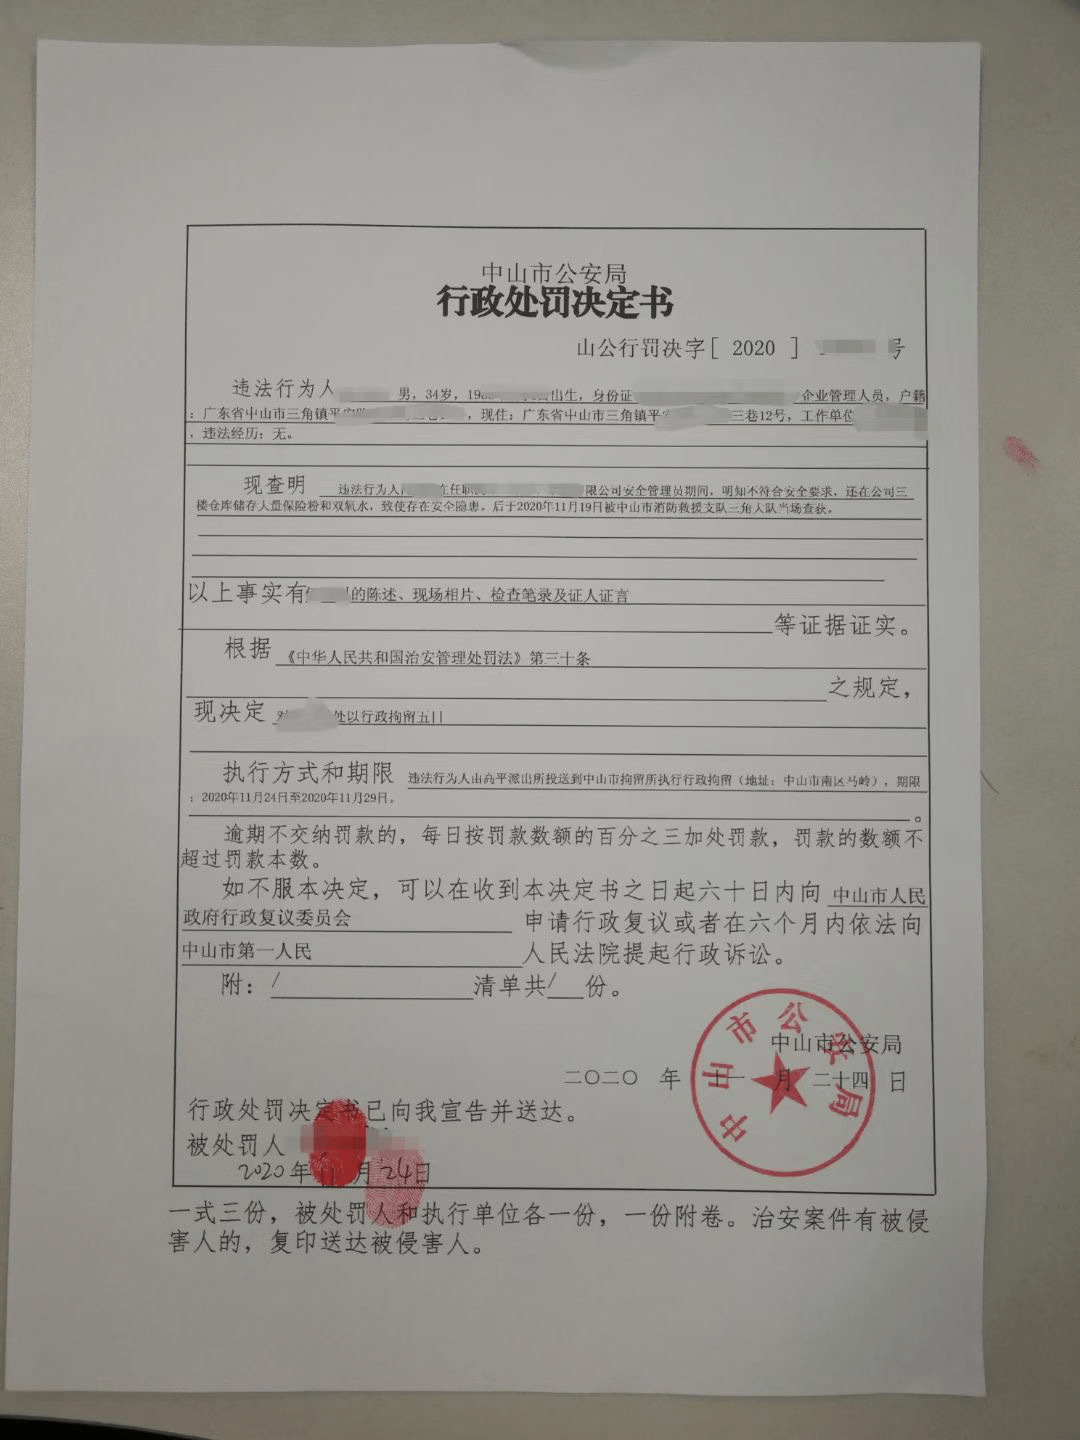 中山市公安局
行政处罚决定书
山公行罚决字[ 2020 ] 号
违法行为人 男，34岁，198 出生，身份证 企业管理人员，户籍
：广东省中山市三角镇平安 ，现住：广东省中山市三角镇平安 三巷12号，工作单位
，违法经历：无。
现查明 违法行为人 在任职 有限公司安全管理员期间，明知不符合安全要求，还在公司三
楼仓库储存大量保险粉和双氧水，致使存在安全隐患。后于2020年11月19日被中山市消防救援支队三角大队当场查获。
以上事实有 的陈述、现场相片、检查笔录及证人证言
等证据证实。
根据 《中华人民共和国治安管理处罚法》第三十条
之规定，
现决定 对 处以行政拘留五日
执行方式和期限 违法行为人由高平派出所投送到中山市拘留所执行行政拘留（地址：中山市南区马岭），期限
：2020年11月24日至2020年11月29日。
。
逾期不交纳罚款的，每日按罚款数额的百分之三加处罚款，罚款的数额不
超过罚款本数。
如不服本决定，可以在收到本决定书之日起六十日内向 中山市人民
政府行政复议委员会 申请行政复议或者在六个月内依法向
中山市第一人民 人民法院提起行政诉讼。
附：/ 清单共/ 份。
中山市公安局
中山市公安局
二〇二〇 年 十一 月 二十四 日
行政处罚决定书已向我宣告并送达。
被处罚人
2020年11月24日
一式三份，被处罚人和执行单位各一份，一份附卷。治安案件有被侵
害人的，复印送达被侵害人。